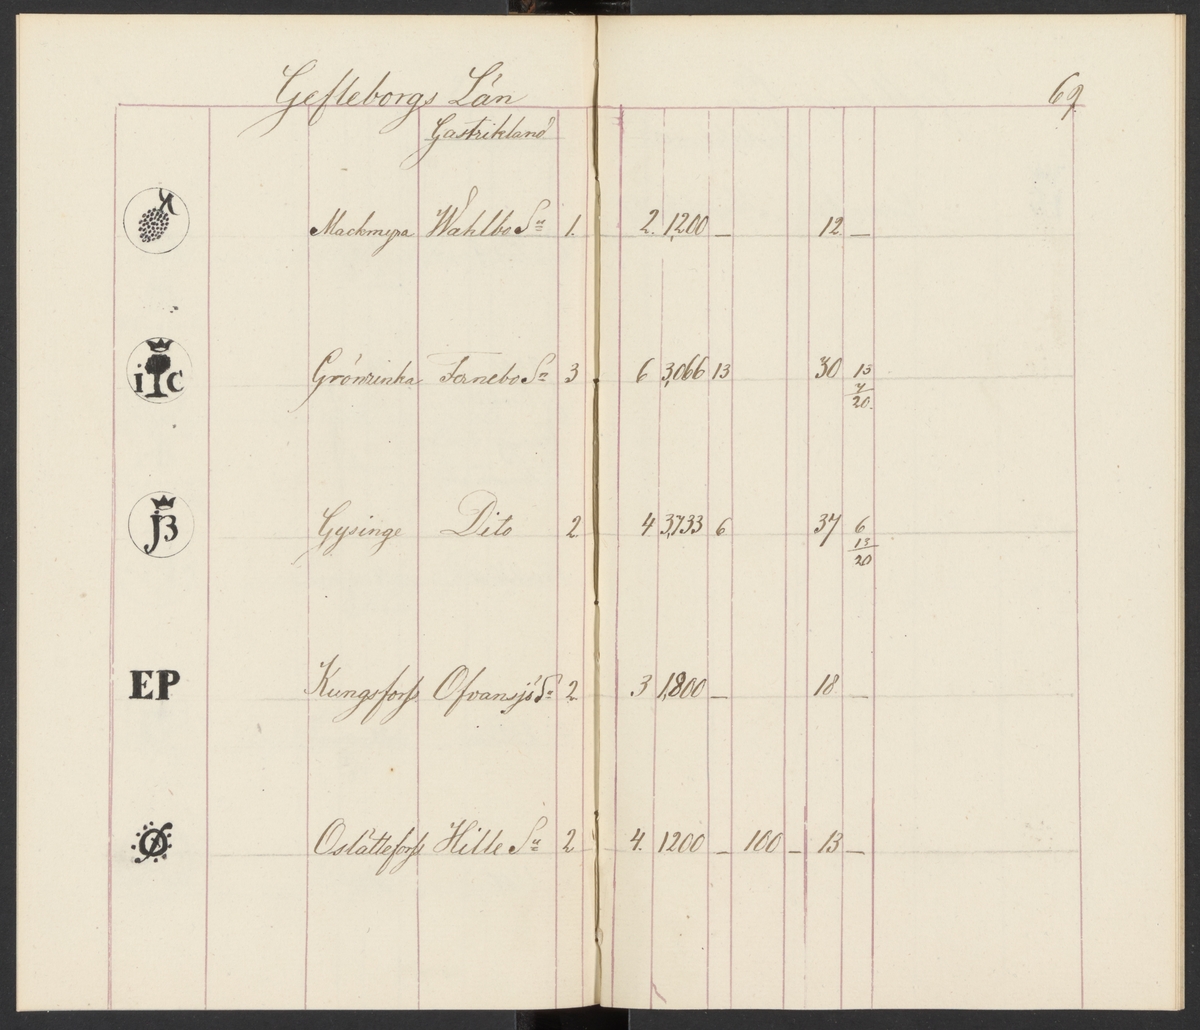 Gefleborgs Län
69.
Gastrikland
Mackmyra Wahlbo Sn 1. 2. 1,200 _ 12. _
i C Grönsinka Fernebo Sn 3 6 3,066 13 30 13
7
20.
J3 Gysinge Dito 2 4 3,733 6 37 6
13
20
EP Kungsforss Ofvansjö Sn 2. 3 1,800 _ 18 _
Oslätteforss Hille Sn 2 4. 1200 _ 100 _ 13 _